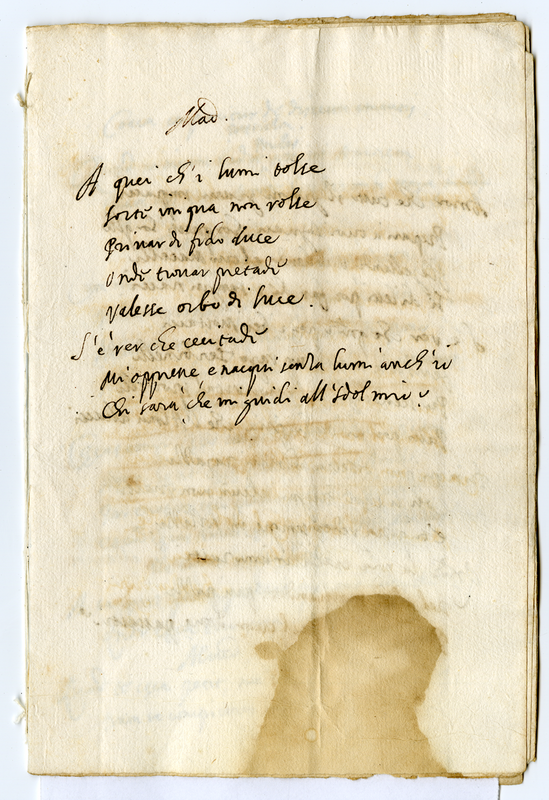 Mad.
A quei ch'i lumi tolse
sorte unqua non volse
Privar di fido duce
onde trovar pietade
valesse orbo di luce.
S'è ver che cecitade
Mi oppresse e nacqui senza lumi anch'io
Chi sarà che mi guidi all'Idol mio?